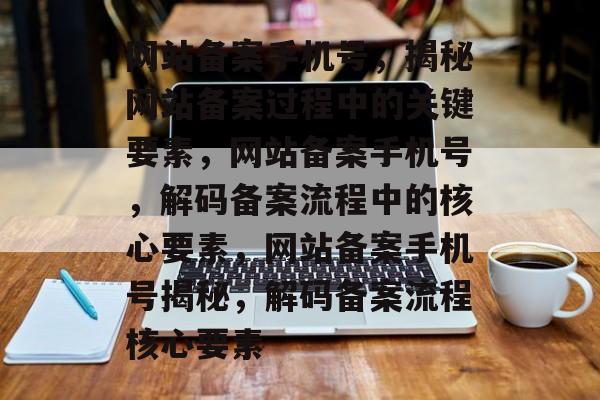 网站备案手机号，揭秘
网站备案过程中的关键
要素，网站备案手机号
，解码备案流程中的核
心要素，网站备案手机
号揭秘，解码备案流程
核心要素